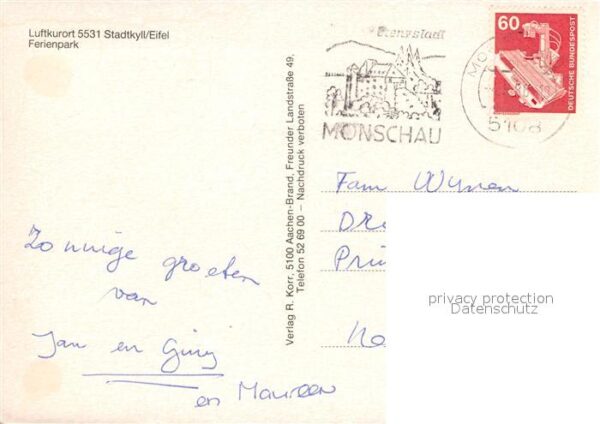 Luftkurort 5531 Stadtkyll/Eifel
Ferienpark
Zonnige groeten
van
Jan en
en Maureen
Verlag R. Korr, 5100 Aachen-Brand, Freunder Landstraße 49,
Telefon 52 69 00 – Nachdruck verboten
MONSCHAU
60
DEUTSCHE BUNDESPOST
5108
Fam
privacy protection
Datenschutz